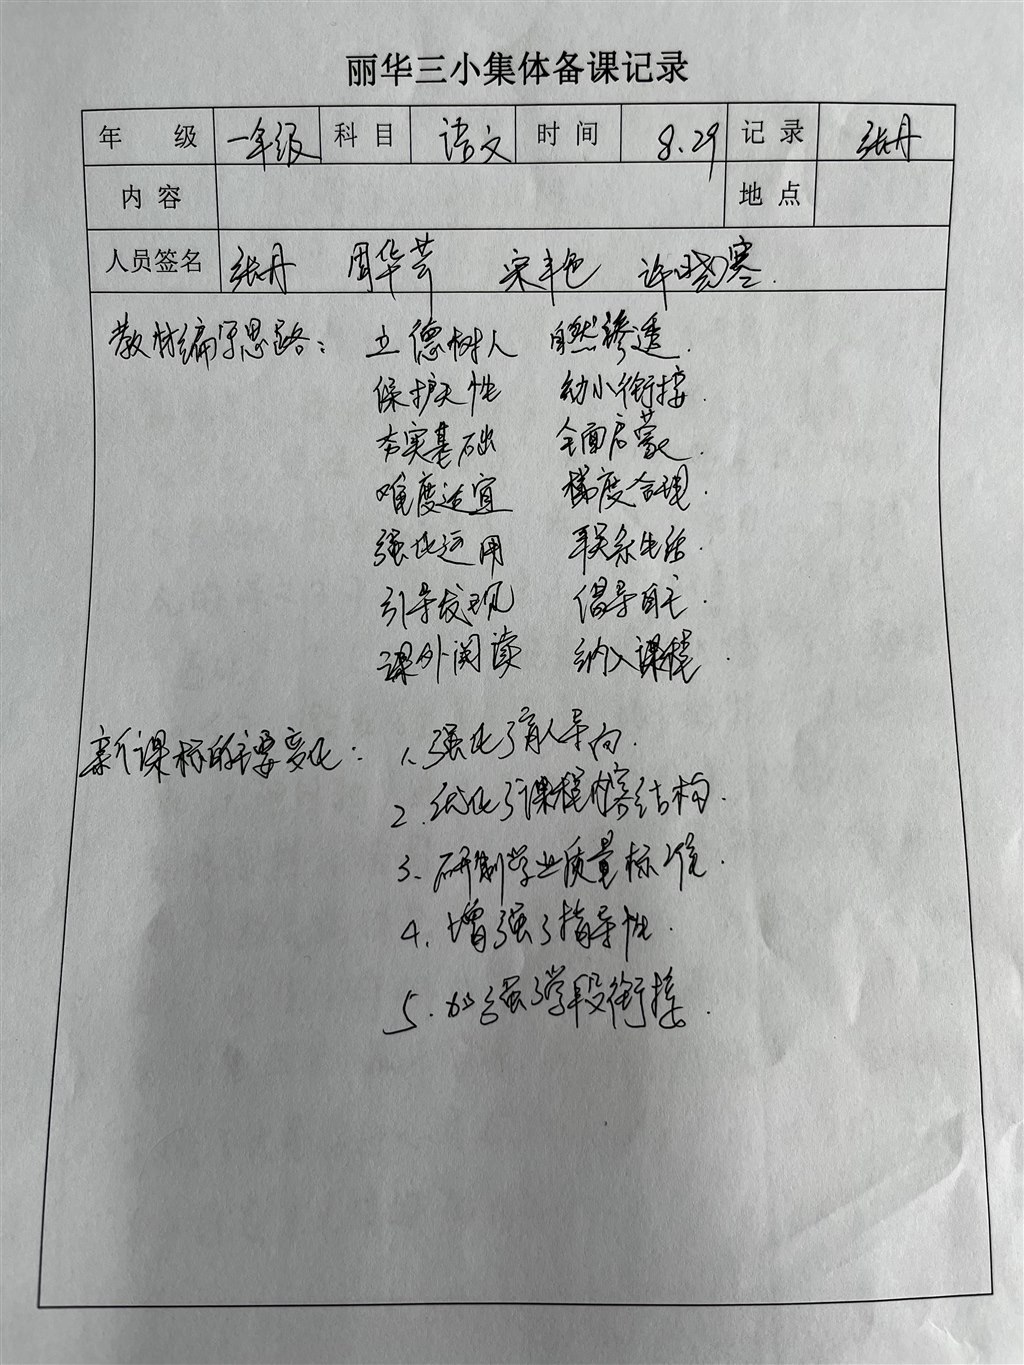 丽华三小集体备课记录
年 级 一年级 科 目 语文 时 间 8.29 记 录 张丹
内 容 地 点
人员签名 张丹 周华芸 宋丰色 许晓寒.
教材编写思路: 立德树人 自然渗透.
保护天性 幼小衔接.
夯实基础 全面启蒙.
难度适宜 梯度合理.
强化运用 联系生活.
引导发现 倡导自主.
课外阅读 纳入课程.
新课标的主要变化: 1、强化了育人导向.
2.优化了课程内容结构.
3、研制学业质量标准.
4.增强了指导性.
5.加强了学段衔接.